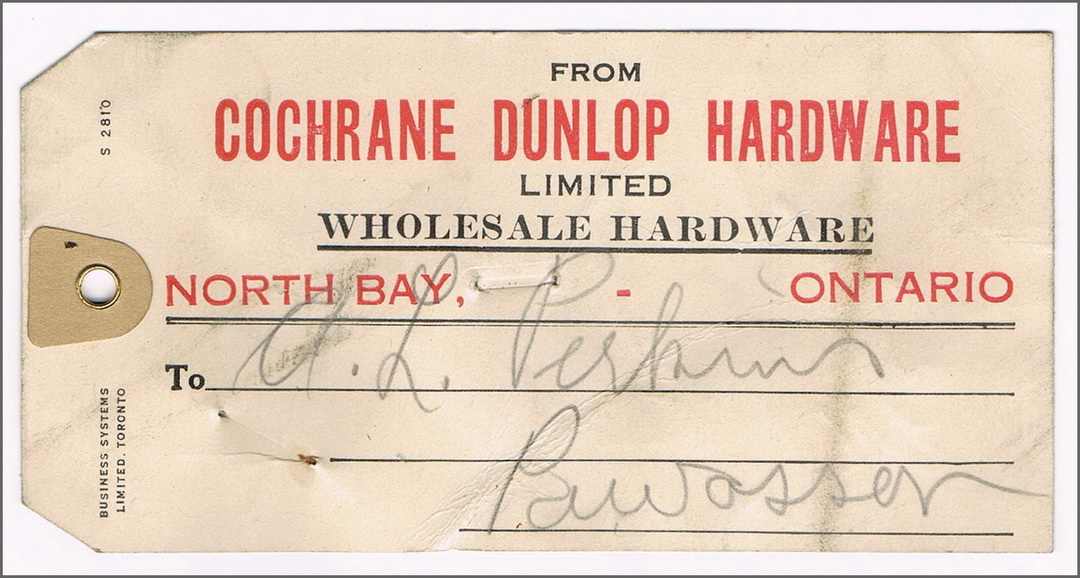 FROM
COCHRANE DUNLOP HARDWARE
LIMITED
WHOLESALE HARDWARE
NORTH BAY, - ONTARIO
To A. L. Perkins
Powassan
S 2810
BUSINESS SYSTEMS
LIMITED. TORONTO